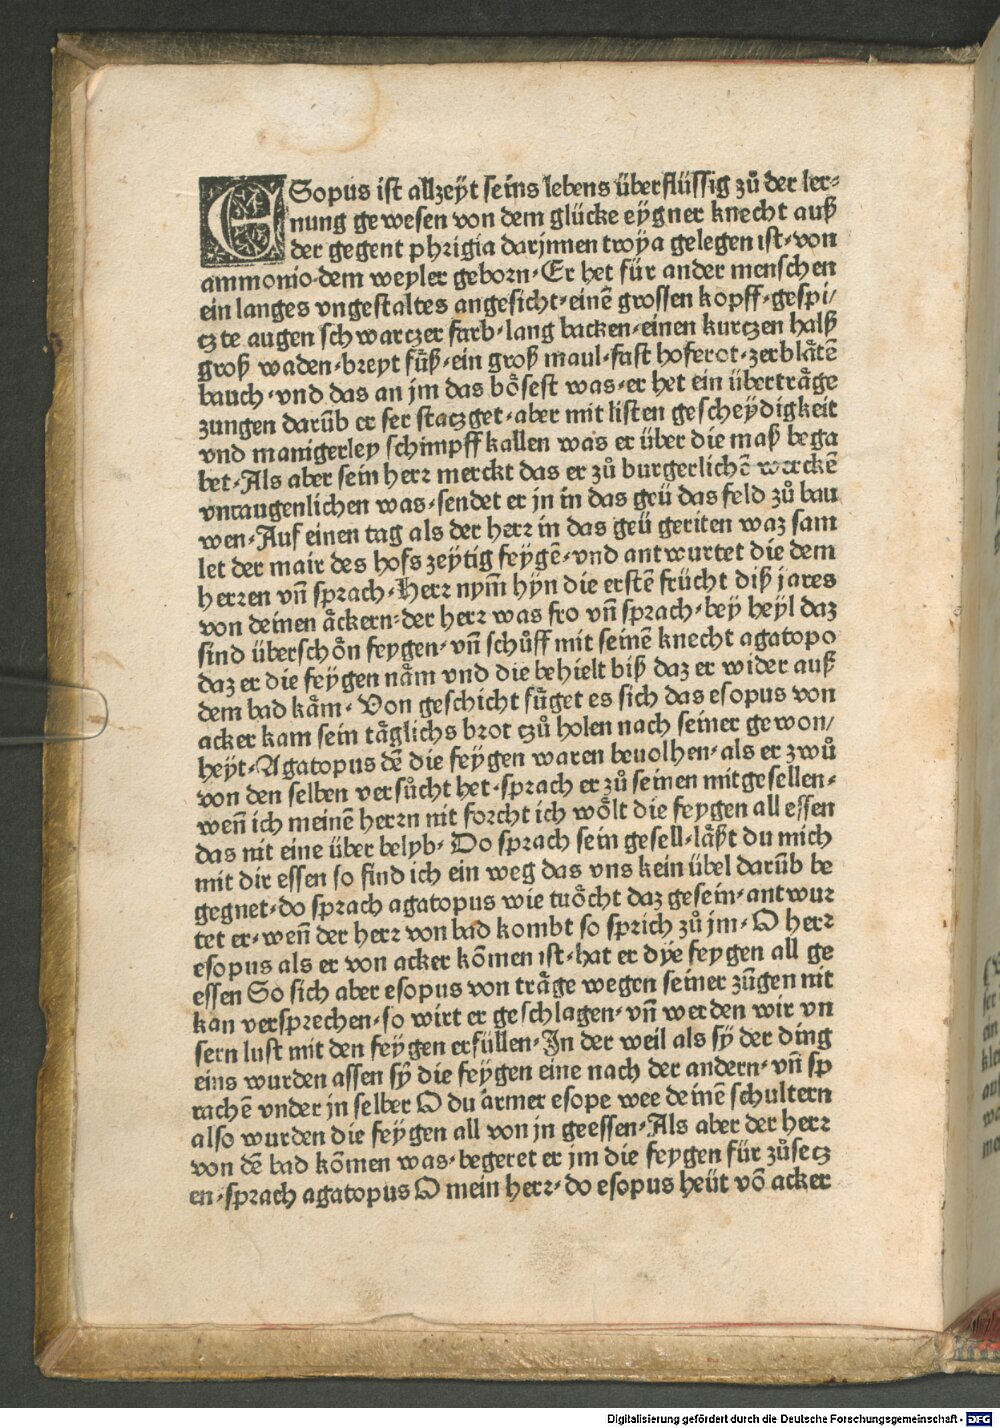 ESopus ist allzeyt seins lebens überflüssig zů der ler⸗
nung gewesen von dem glücke eygner knecht auß
der gegent phrigia darjnnen troya gelegen ist⸗von
ammonio⸗dem weyler geborn⸗Er het für ander menschen
ein langes vngestaltes angesicht⸗einē grossen kopff⸗gespi/
czte augen schwarczer farb⸗lang backen⸗einen kurczen halß
groß waden⸗breyt fu̇ß⸗ein groß maul⸗fast hoferot⸗zerblåtē
bauch⸗vnd das an jm das bo̊sest was⸗er het ein übertråge
zungen darūb er ser staczget⸗aber mit listen gescheydigkeit
vnd manigerley schimpff kallen was er über die maß bega
bet⸗Als aber sein herr merckt das er zů burgerlichē werckē
vntaugenlichen was⸗sendet er jn in das geü das feld zů bau
wen⸗Auf einen tag als der herr in das geü geriten waz sam
let der mair des hofs zeytig feygē⸗vnd antwurtet die dem
herren vn̄ sprach⸗Herr nym̄ hyn die erstē frücht diß jares
von deinen åckern⸗der herr was fro vn̄ sprach⸗bey heyl daz
sind überscho̊n feygen⸗vn̄ schůff mit seinē knecht agatopo
daz er die feygen nåm vnd die behielt biß daz er wider auß
dem bad kåm⸗Von geschicht fůget es sich das esopus von
acker kam sein tåglichs brot czů holen nach seiner gewon/
heyt⸗Agatopus dē die feygen waren beuolhen⸗als er zwů
von den selben versůcht het⸗sprach er zů seinen mitgesellen⸗
wen̄ ich meinē herrn nit forcht ich wo̊lt die feygen all essen
das nit eine über belyb⸗Do sprach sein gesell⸗låßt du mich
mit dir essen so find ich ein weg das vns kein übel darūb be
gegnet⸗do sprach agatopus wie mo̊cht daz gesein⸗antwur
tet er⸗wen̄ der herr von bad kombt so sprich zů jm⸗O herr
esopus als er von acker kōmen ist⸗hat er dye feygen all ge
essen So sich aber esopus von tråge wegen seiner zūgen nit
kan versprechen⸗so wirt er geschlagen⸗vn̄ werden wir vn
sern lust mit den feygen erfüllen⸗In der weil als sy der ding
eins wurden assen sy die feygen eine nach der andern⸗vn̄ sp
rachē vnder jn selber O du armer esope wee deinē schultern
also wurden die feygen all von jn geessen⸗Als aber der herr
von dē bad kōmen was⸗begeret er jm die feygen für zůsecz
en⸗sprach agatopus O mein herr⸗do esopus heüt vō acker
Digitalisierung gefördert durch die Deutsche Forschungsgemeinschaft - DFG